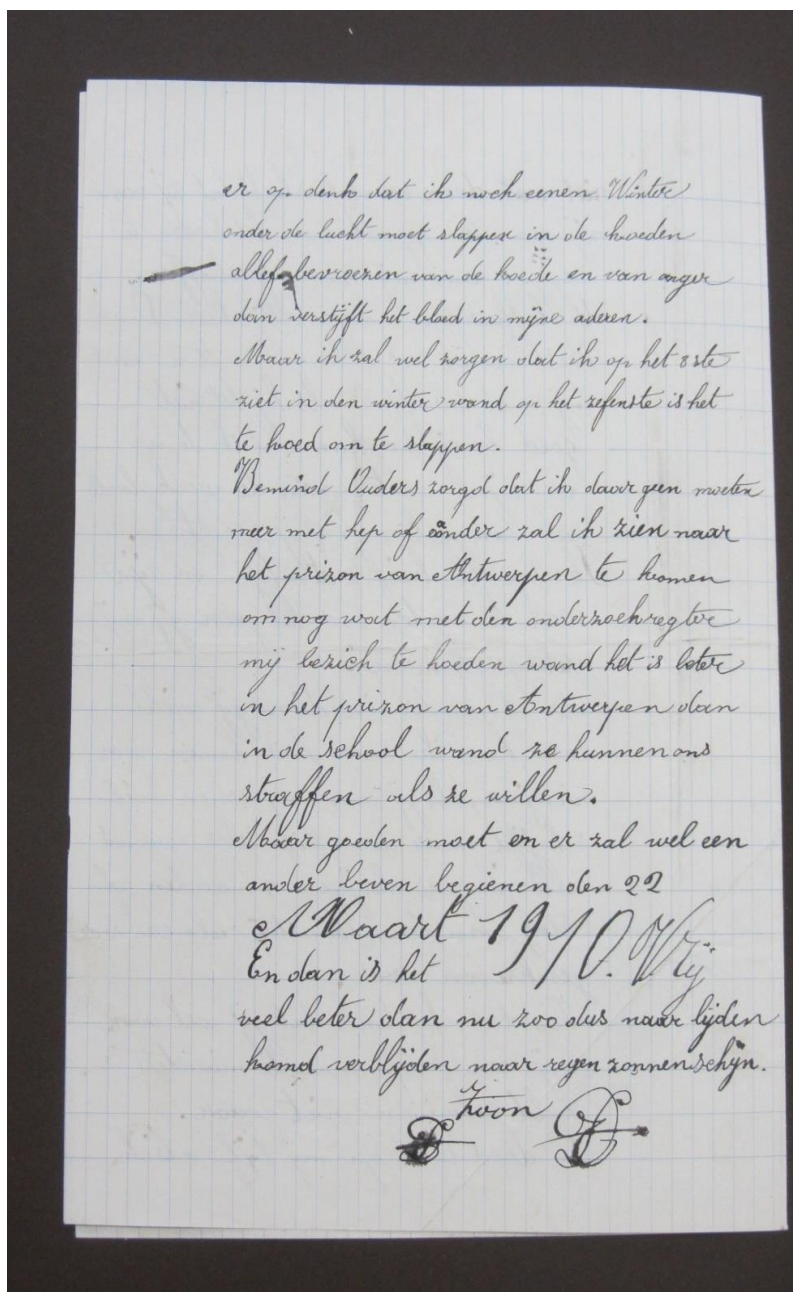 er op denk dat ik noch eenen Winter
onder de lucht moet slappen in de koeden
allef bevroezen van de koede en van onger
dan verstijft het bloed in mijne aderen.
Maar ik zal wel zorgen dat ik op het 8ste
ziet in den winter wand op het zefenste is het
te koed om te slappen.
Bemind Ouders zorgd dat ik daar geen moeten
meer met hep of aander zal ik zien naar
het prizon van Antwerpen te komen
om nog wat met den onderzoekregter
mij bezich te hoeden wand het is beter
in het prizon van Antwerpen dan
in de school wand ze kunnen ons
straffen als ze willen.
Maar goeden moet en er zal wel een
ander leven begienen den 22
Maart 1910. Vrij
En dan is het
veel beter dan nu zoo dus naar lijden
komd verblijden naar regen zonnenschijn.
Zoon